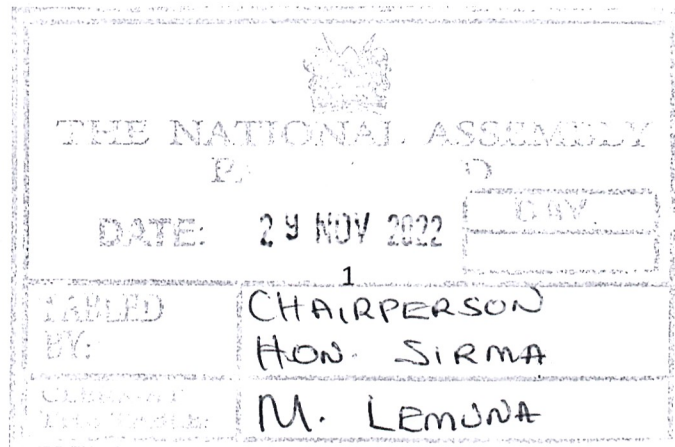 THE NATIONAL ASSEMBLY
DATE: 29 NOV 2022
DAY.
1
TABLED
BY:
CHAIRPERSON
HON. SIRMA
M. LEMUNA